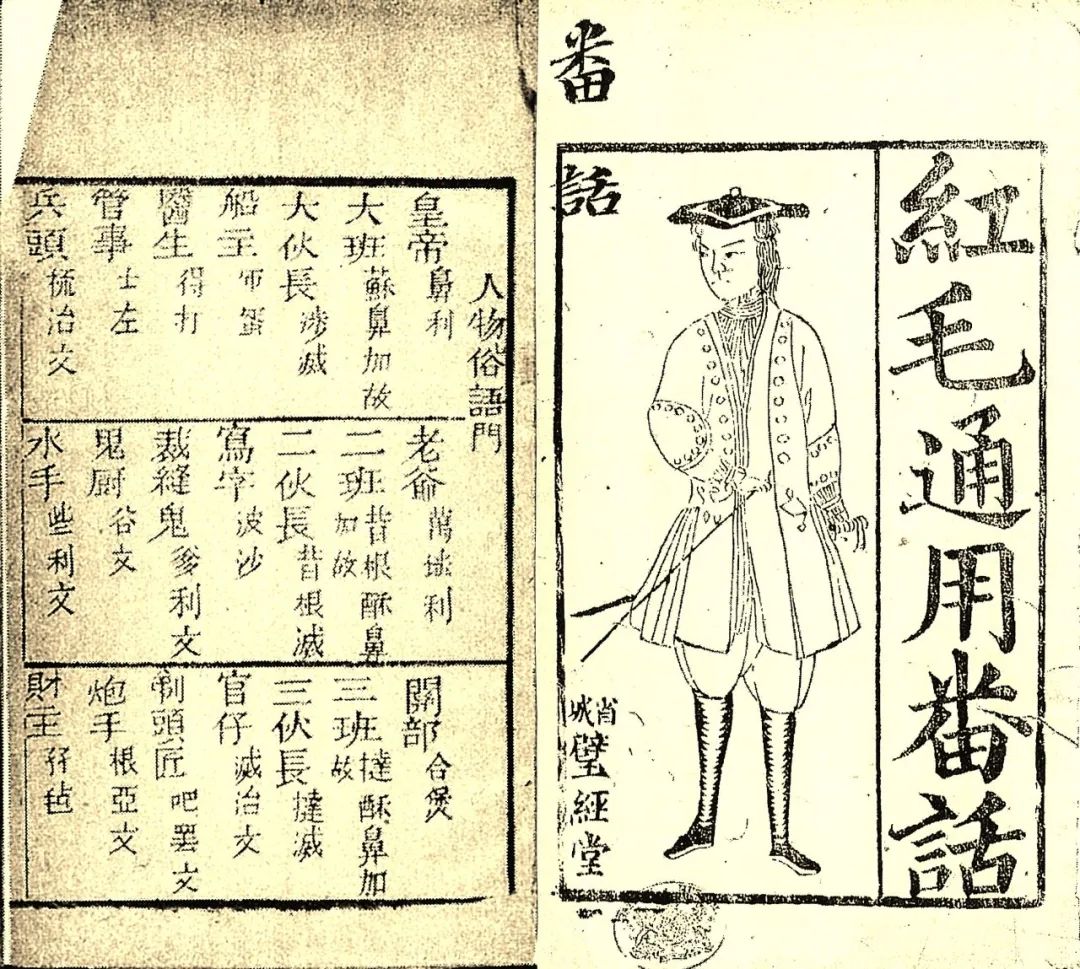 紅毛通用番話
番話
省城璧經堂
人物俗語門
皇帝 鼻利
大班 蘇鼻加故
大伙長 渉滅
船主 蛋
醫生 得打
管事 士左
兵頭 梳治文
老爺 萬利
二班 昔根酥鼻加故
二伙長 昔根滅
寫字 波沙
裁縫鬼 爹利文
鬼廚 谷文
水手 些利文
關部 合煲
三班 撻酥鼻加故
三伙長 撻滅
官仔 滅治文
剃頭匠 吧罷文
炮手 根亞文
財主 孖毡